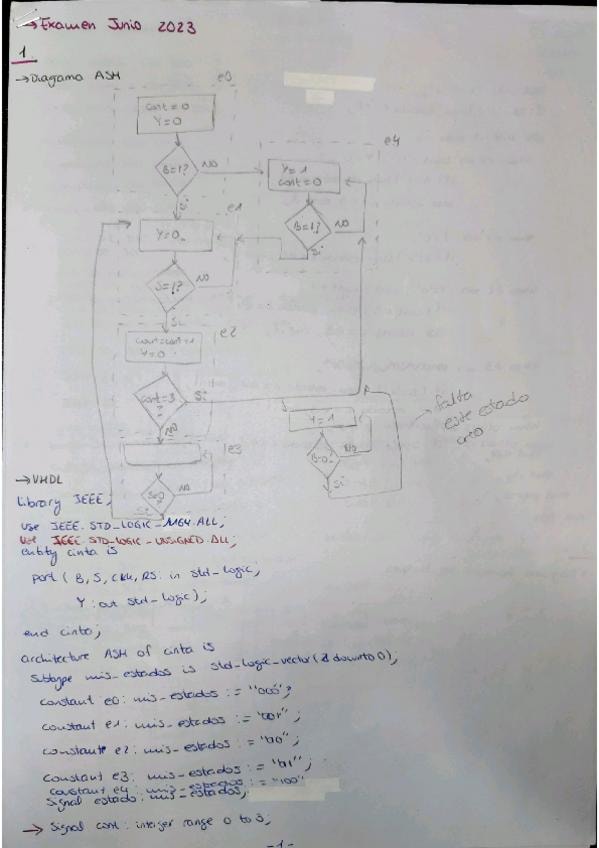 →Examen Junio 2023
1.
→Diagrama ASM
e0
cont=0
Y=0
B=1?
NO
Si
e4
Y=1
cont=0
B=1?
NO
Si
e1
Y=0
S=1?
NO
Si
e2
cont=cont+1
Y=0
cont=3
?
Si
NO
e3
S=0
NO
Si
Y=1
B=0?
No
Si
→ falta
este estado
creo
→VHDL
Library IEEE;
use IEEE.STD_LOGIC_1164.ALL;
use IEEE.STD_LOGIC_UNSIGNED.ALL;
entity cinta is
port ( B, S, clk, RS: in std_logic;
Y: out std_logic);
end cinta;
architecture ASM of cinta is
Subtype mis_estados is std_logic_vector(2 downto 0);
constant e0: mis_estados := "000";
constant e1: mis_estados := "001";
constante e2: mis_estados := "010";
constant e3: mis_estados := "011";
constant e4: mis_estados := "100"
Signal estado: mis_estados;
→ Signal cont: interger range 0 to 3;
-1-